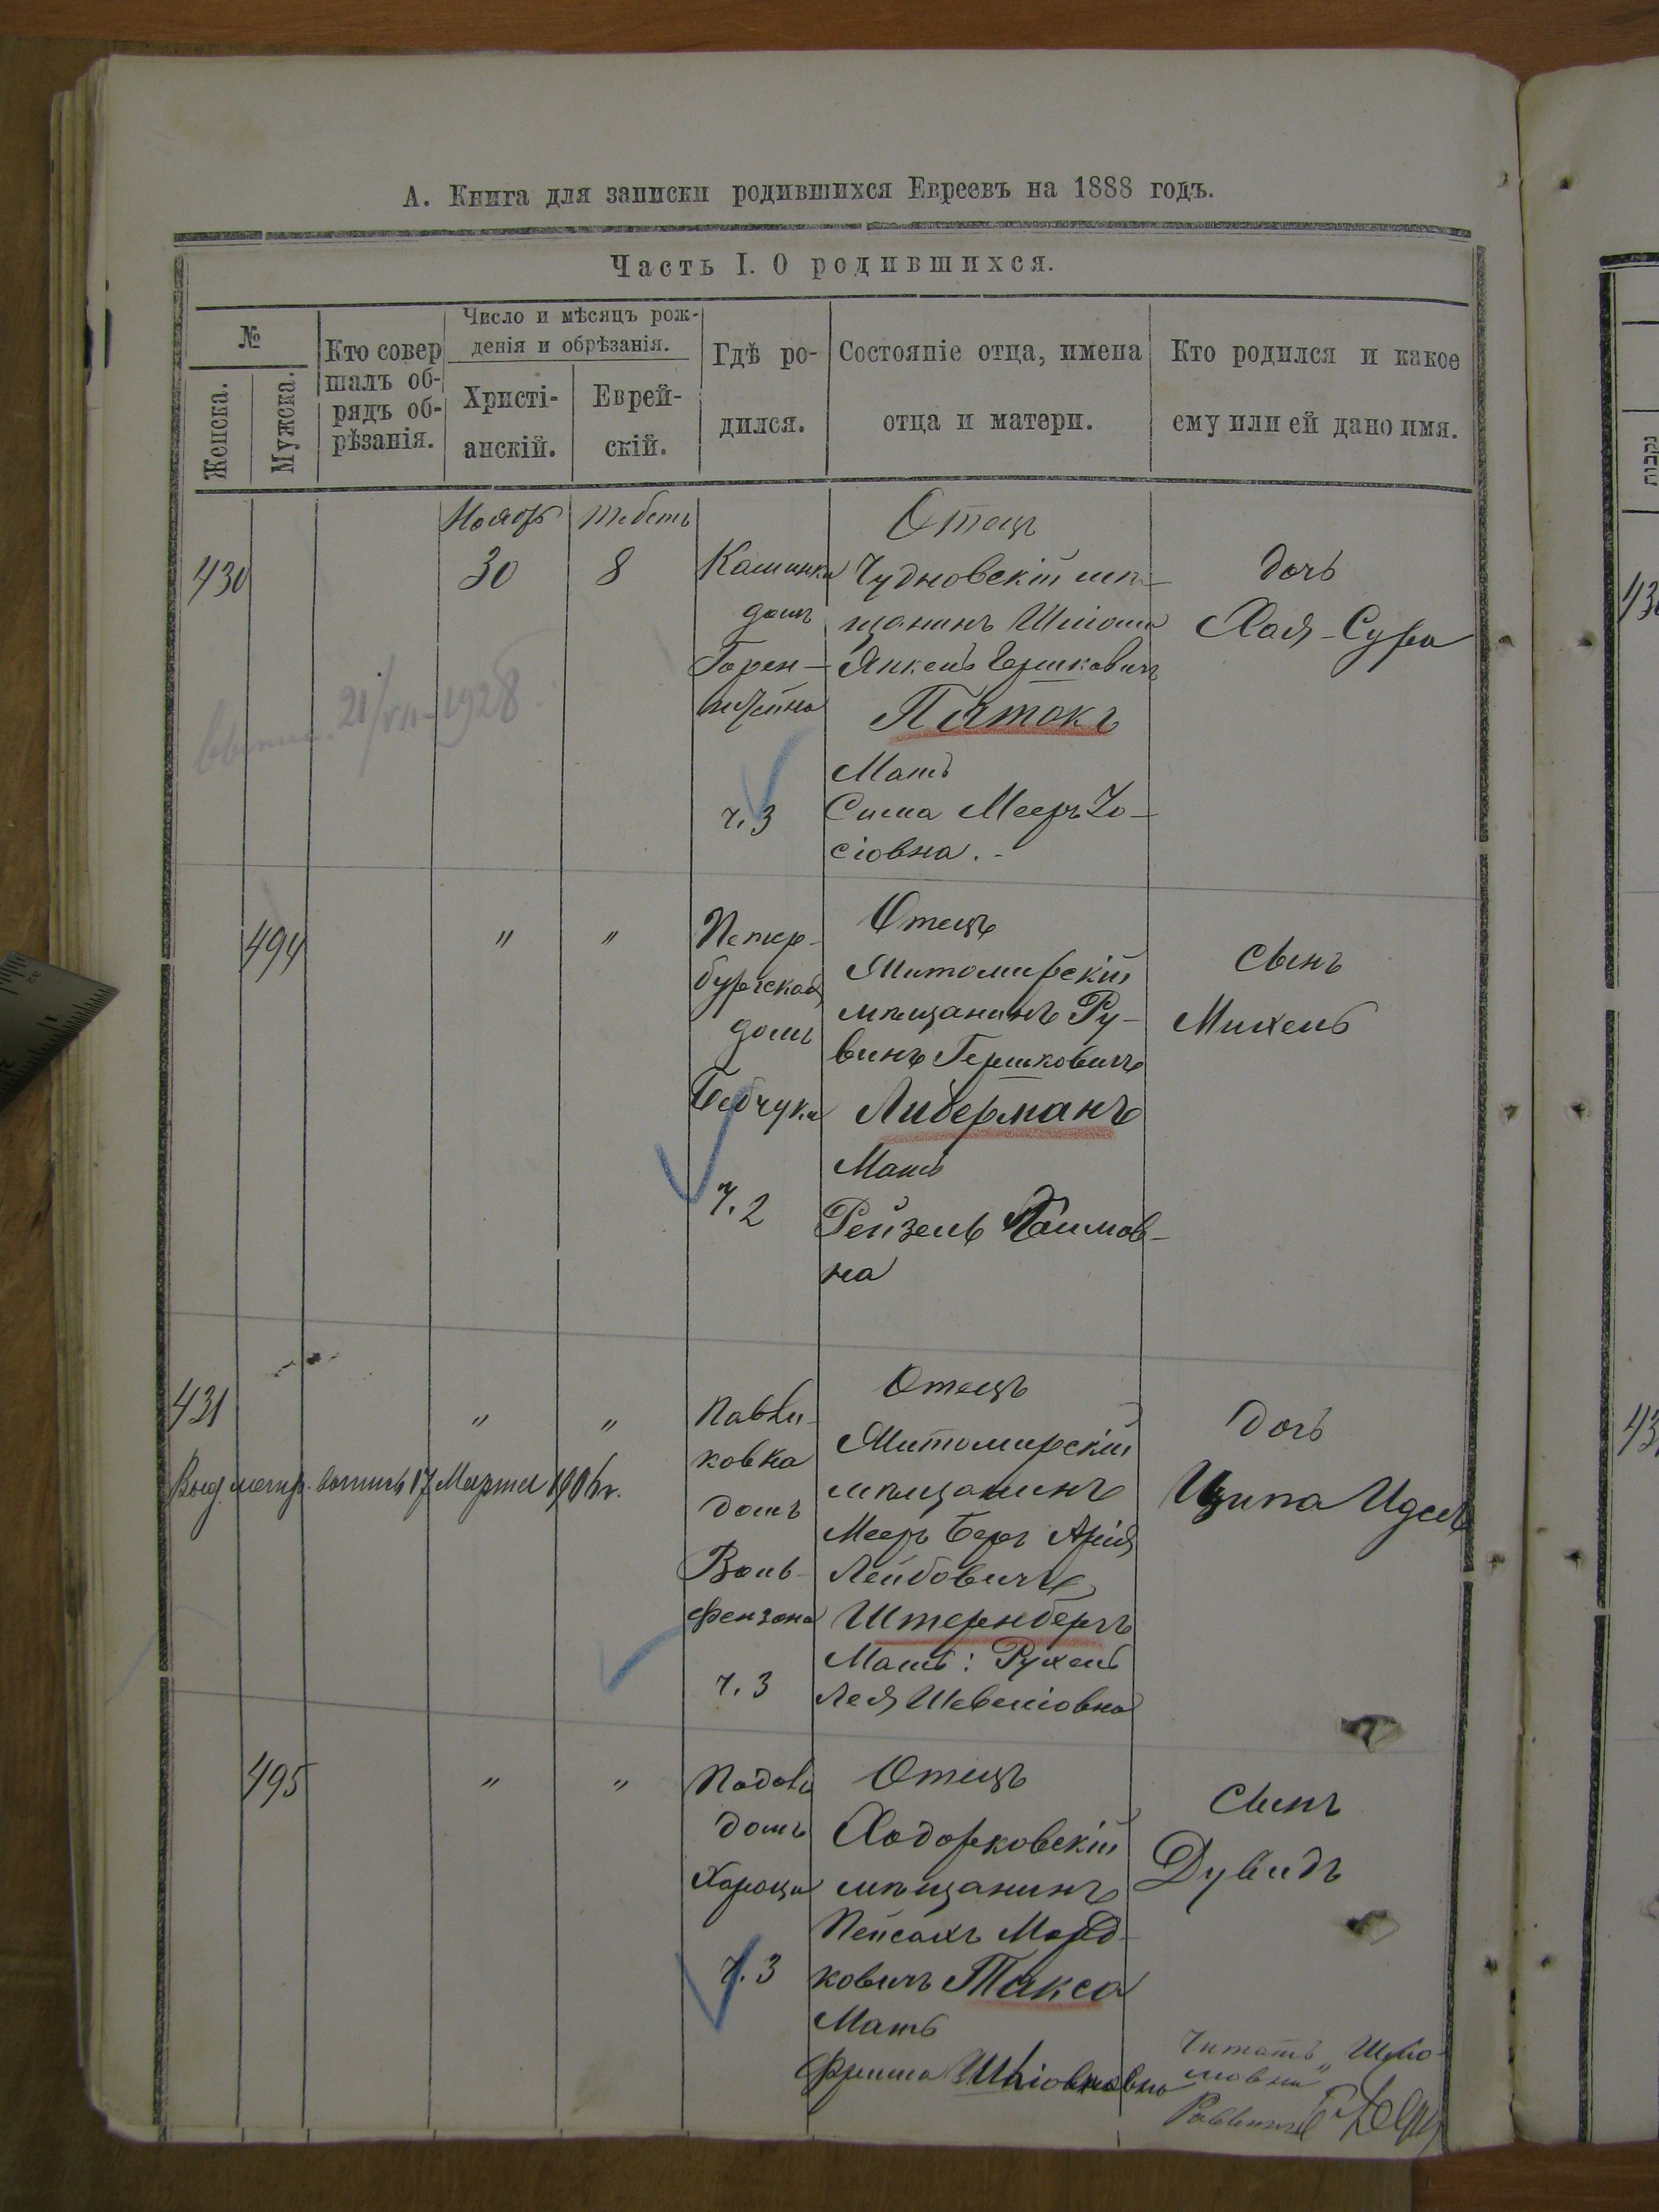 А. Книга для записки родившихся Евреевъ на 1888 годъ.
Часть I. О родившихся.
№
Женска.
Мужска.
Кто совер
шалъ об-
рядъ об-
рѣзанія.
Число и мѣсяцъ рож-
денія и обрѣзанія.
Христі-
анскій.
Еврей-
скій.
Гдѣ ро-
дился.
Состояніе отца, имена
отца и матери.
Кто родился и какое
ему или ей дано имя.
430
Ноябрь
30
Тебетъ
8
домъ
ч. 3
Отецъ
Чудновскій мѣ-
щанинъ Шлiома
Янкель Гершковичъ
Пятокъ
Мать
Сима Мееръ Іо-
сіовна.
дочь
Хая-Сура
21/VII-1928
494
"
"
Петер-
бургская
домъ
ч. 2
Отецъ
Житомирскій
мѣщанинъ Ру-
винъ Гершковичъ
Либерманъ
Мать
Рейзель Хаимов-
на
сынъ
Михель
431
"
"
Выд. метр. выпись 17 Марта
Павли-
ковка
домъ
Воль-
фензона
ч. 3
Отецъ
Житомирскій
мѣщанинъ
Мееръ Беръ Арія
Лейбовичъ
Штернбергъ
Мать: Рухель
Лея Шевеліовна
дочь
Ципа Идесъ
495
"
"
Подолъ
домъ
ч. 3
Отецъ
Ходорковскій
мѣщанинъ
Пейсахъ Морд-
ковичъ Такса
Мать
Фрима
сынъ
Дувидъ
Читать „Шліо-
мовна"
Раввинъ
נקבות